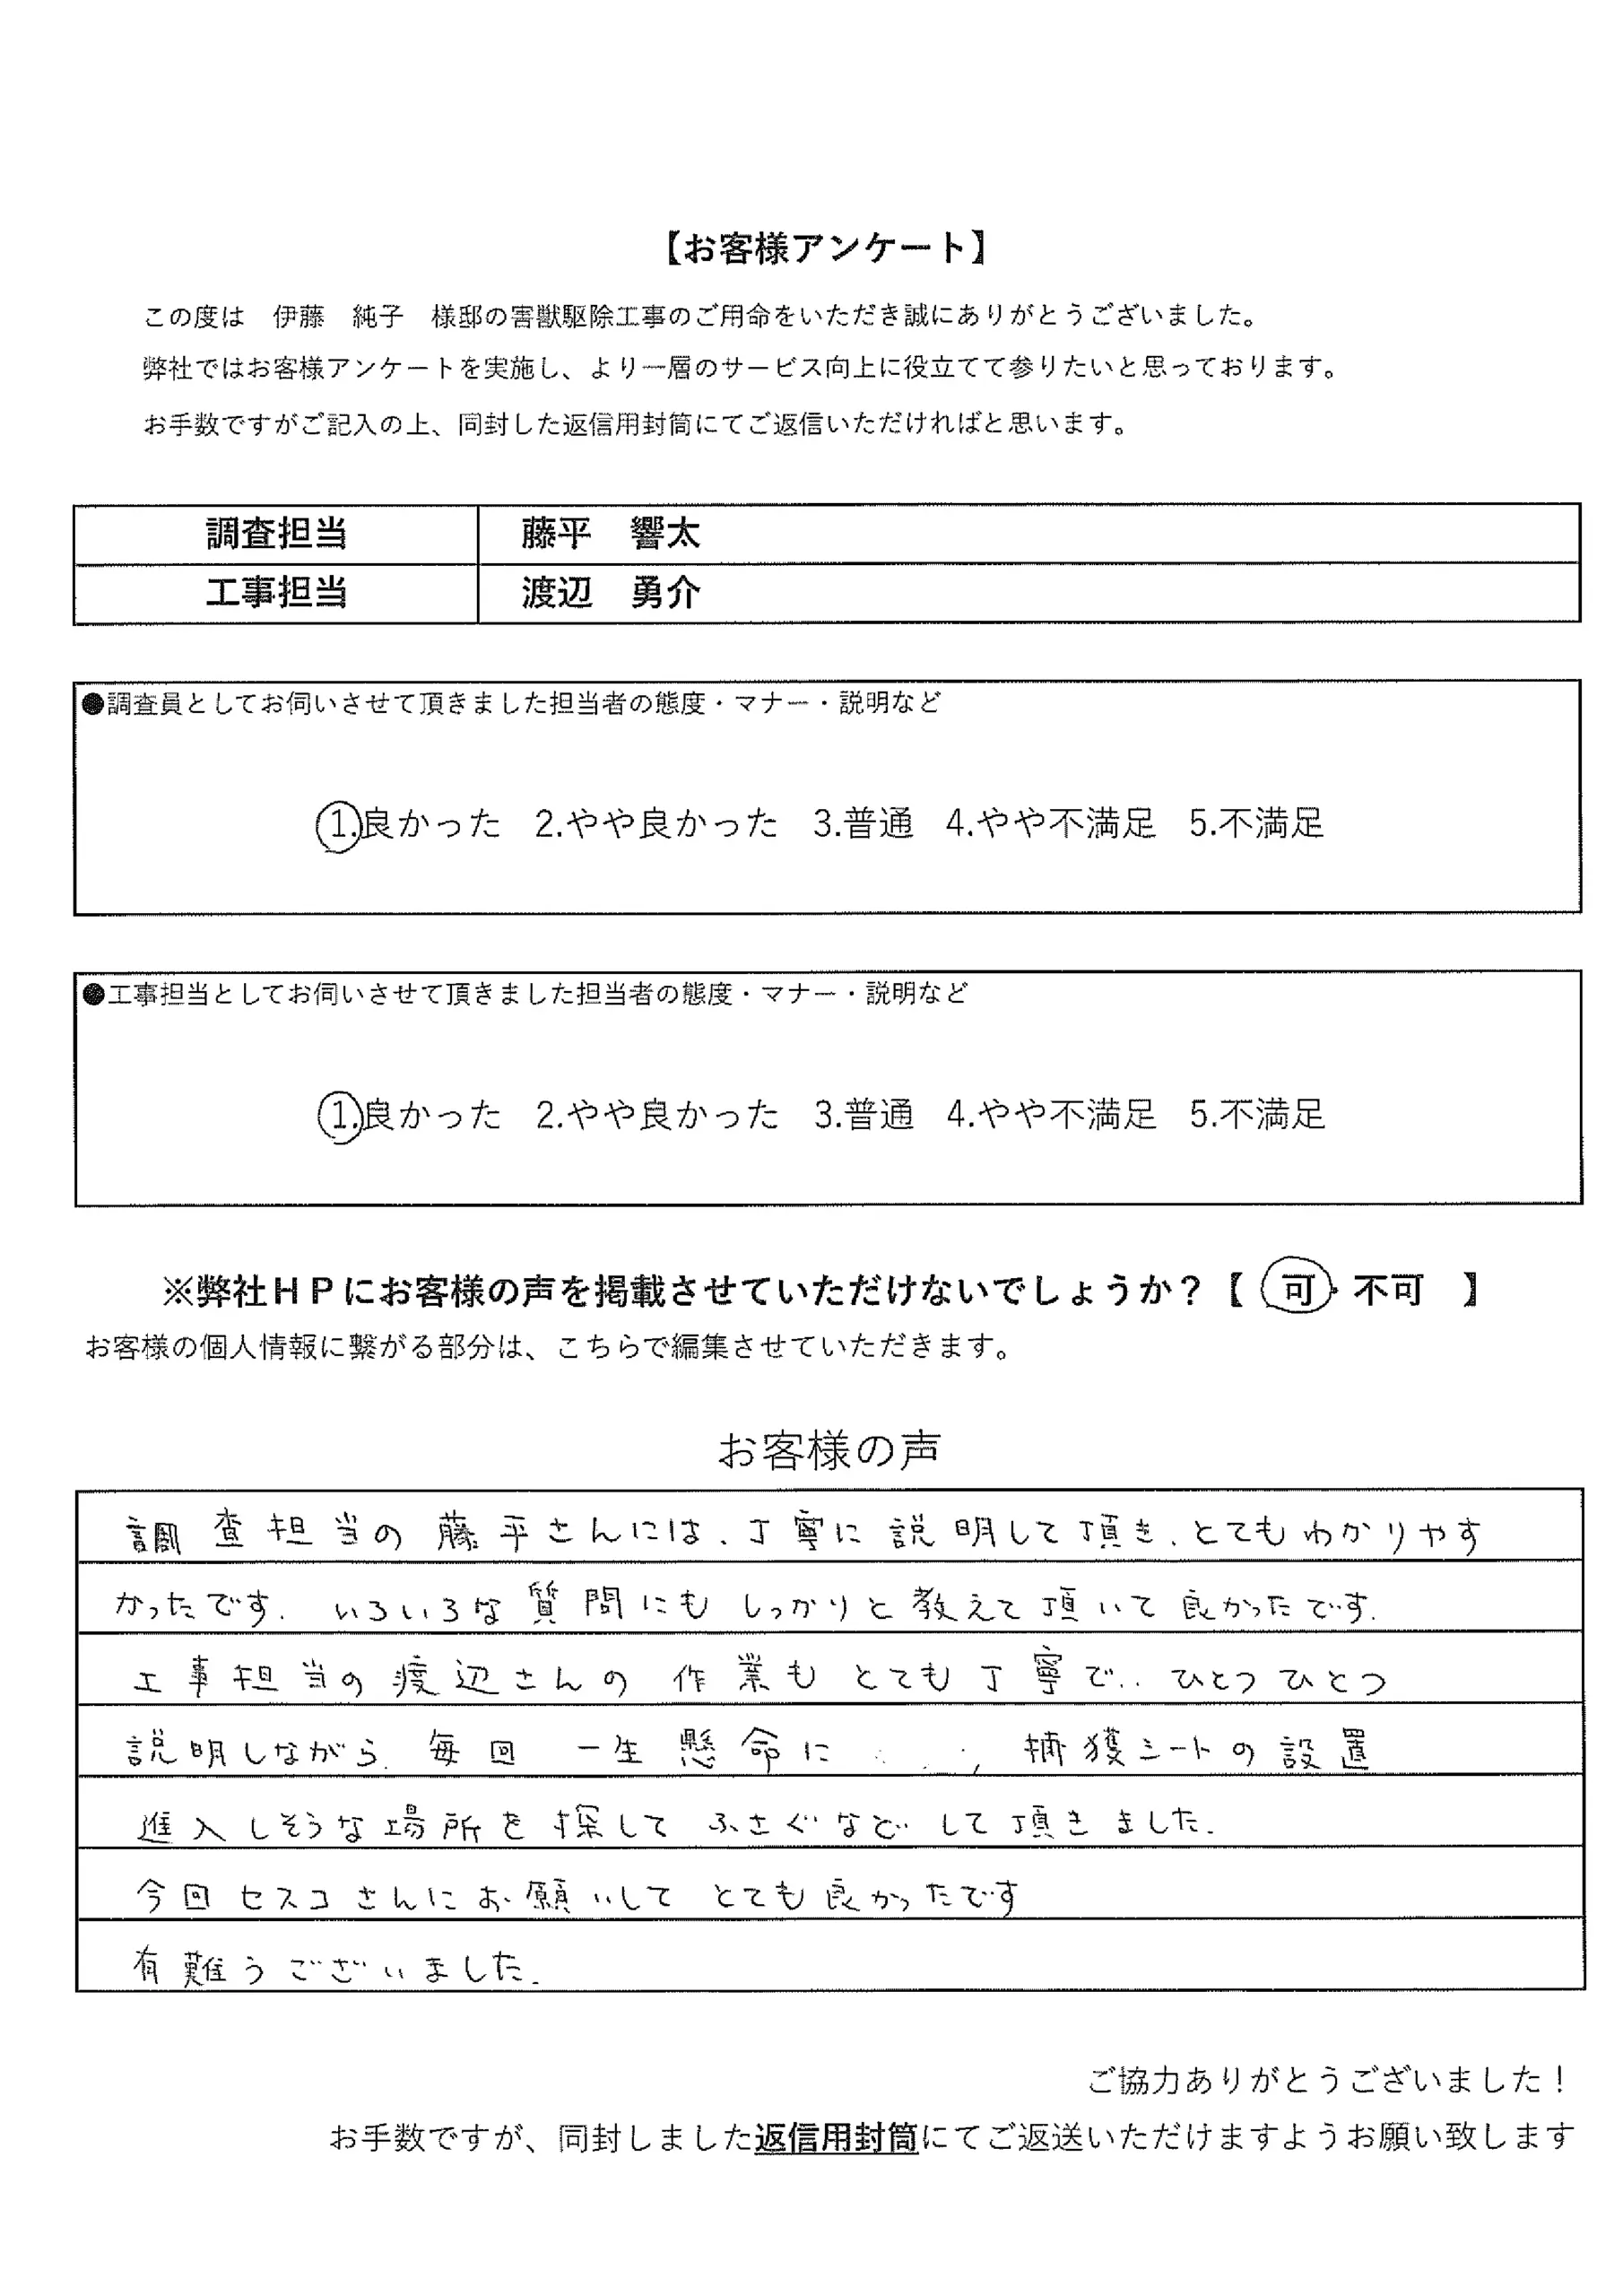 【お客様アンケート】
この度は　伊藤　純子　様邸の害獣駆除工事のご用命をいただき誠にありがとうございました。
弊社ではお客様アンケートを実施し、より一層のサービス向上に役立てて参りたいと思っております。
お手数ですがご記入の上、同封した返信用封筒にてご返信いただければと思います。
調査担当　藤平　響太
工事担当　渡辺　勇介
●調査員としてお伺いさせて頂きました担当者の態度・マナー・説明など
1.良かった　2.やや良かった　3.普通　4.やや不満足　5.不満足
●工事担当としてお伺いさせて頂きました担当者の態度・マナー・説明など
1.良かった　2.やや良かった　3.普通　4.やや不満足　5.不満足
※弊社ＨＰにお客様の声を掲載させていただけないでしょうか？【　可・不可　】
お客様の個人情報に繋がる部分は、こちらで編集させていただきます。
お客様の声
調査担当の藤平さんには、丁寧に説明して頂き、とてもわかりやす
かったです。いろいろな質問にもしっかりと教えて頂いて良かったです。
工事担当の渡辺さんの作業もとても丁寧で、ひとつひとつ
説明しながら、毎回一生懸命に、捕獲シートの設置
進入しそうな場所を探してふさぐなどして頂きました。
今回セスコさんにお願いしてとても良かったです
有難うございました。
ご協力ありがとうございました！
お手数ですが、同封しました返信用封筒にてご返送いただけますようお願い致します